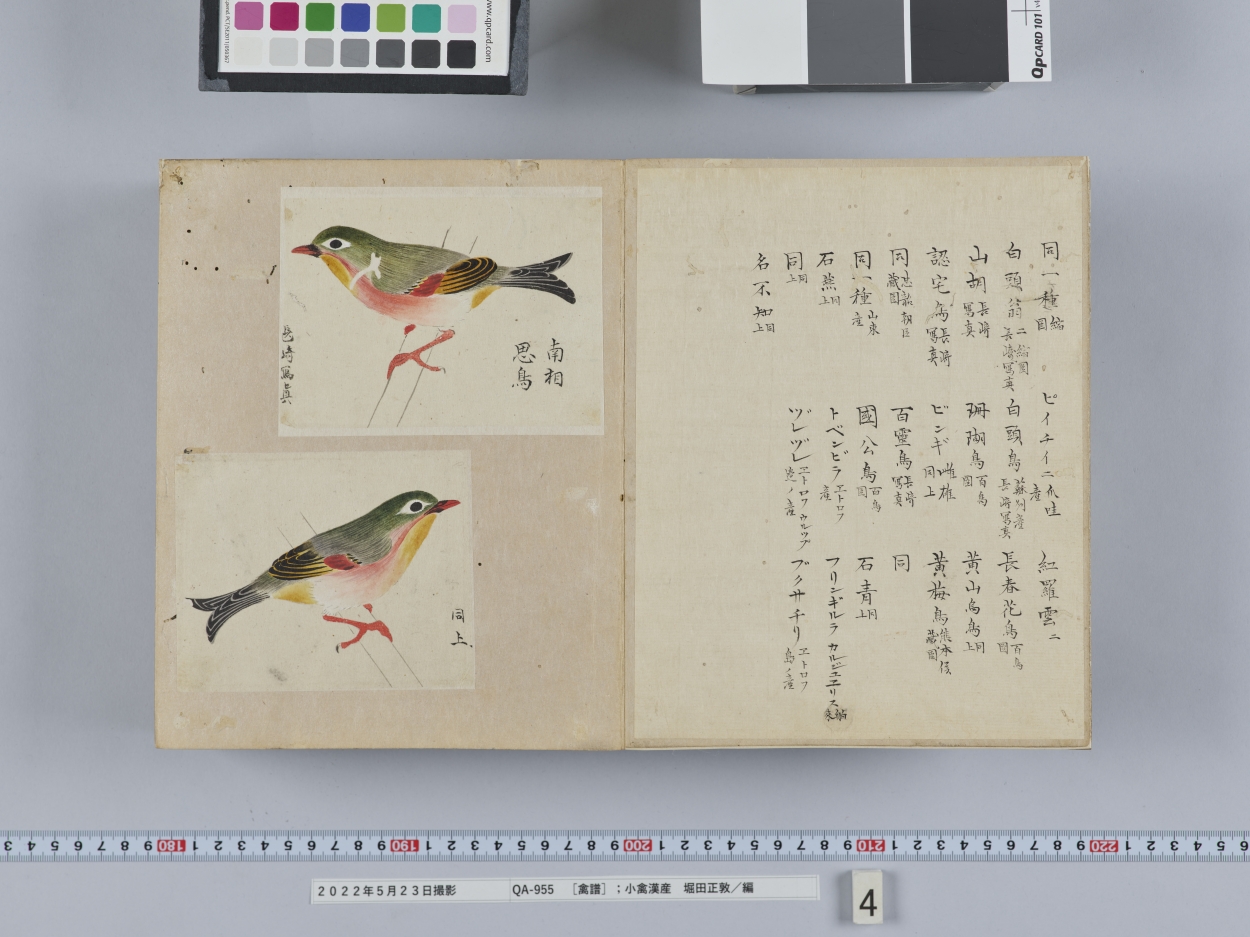 www.qpcard.com
QpCARD 101
同一種 繪圖
ピイチイ 二 爪哇産
紅羅雲 二
白頭翁 二 繪圖 長崎寫真
白頭鳥 蘇州産 長崎寫真
長春花鳥 百鳥圖
山胡 長崎寫真
珊瑚鳥 百鳥圖
黄山鳥 同上
認宅鳥 長崎寫真
ビンギ 雌雄 同上
黄梅鳥 熊本侯藏圖
同 朝臣藏圖
百靈鳥 長崎寫真
同
同一種 山東産
國公鳥 百鳥圖
石青 同上
石燕 同上
トベンビラ エトロフ産
フリンギルラ カルジユエリス
同 同上
ヅレヅレ エトロフ ウルツプ 島ノ産
ブクサチリ エトロフ島ノ産
名不知 同上
南相思鳥
長崎寫真
同上
3 4 5 6 7 8 9 180 1 2 3 4 5 6 7 8 9 190 1 2 3 4 5 6 7 8 9 200 1 2 3 4 5 6 7 8 9 210 1 2 3 4 5 6 7 8 9 220 1 2 3 4 5 6
2022年5月23日撮影 QA-955 [禽譜];小禽漢産 堀田正敦/編
4